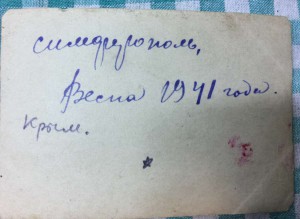 Симферополь,
Весна 1941 года.
Крым.